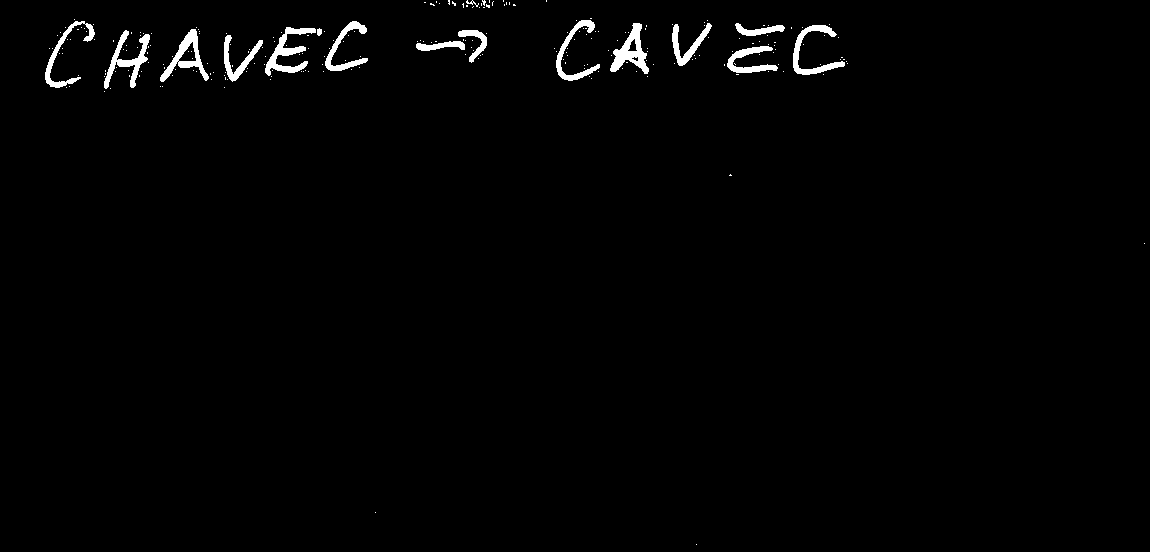 CHAVEC → CAVEC